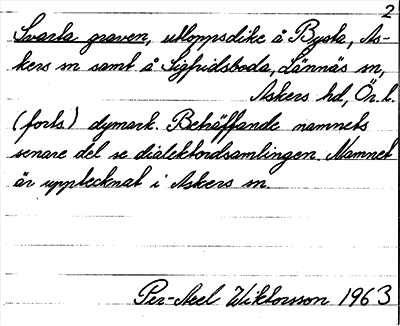 2
Svarta graven, utloppsdike å Bysta, As-
kers sn samt å Sigfridsboda, Lännäs sn,
Askers hd, Ör. l.
(forts.) dymark. Beträffande namnets
senare del se dialektordsamlingen. Namnet
är upptecknat i Askers sn.
Per-Axel Wiktorsson 1963